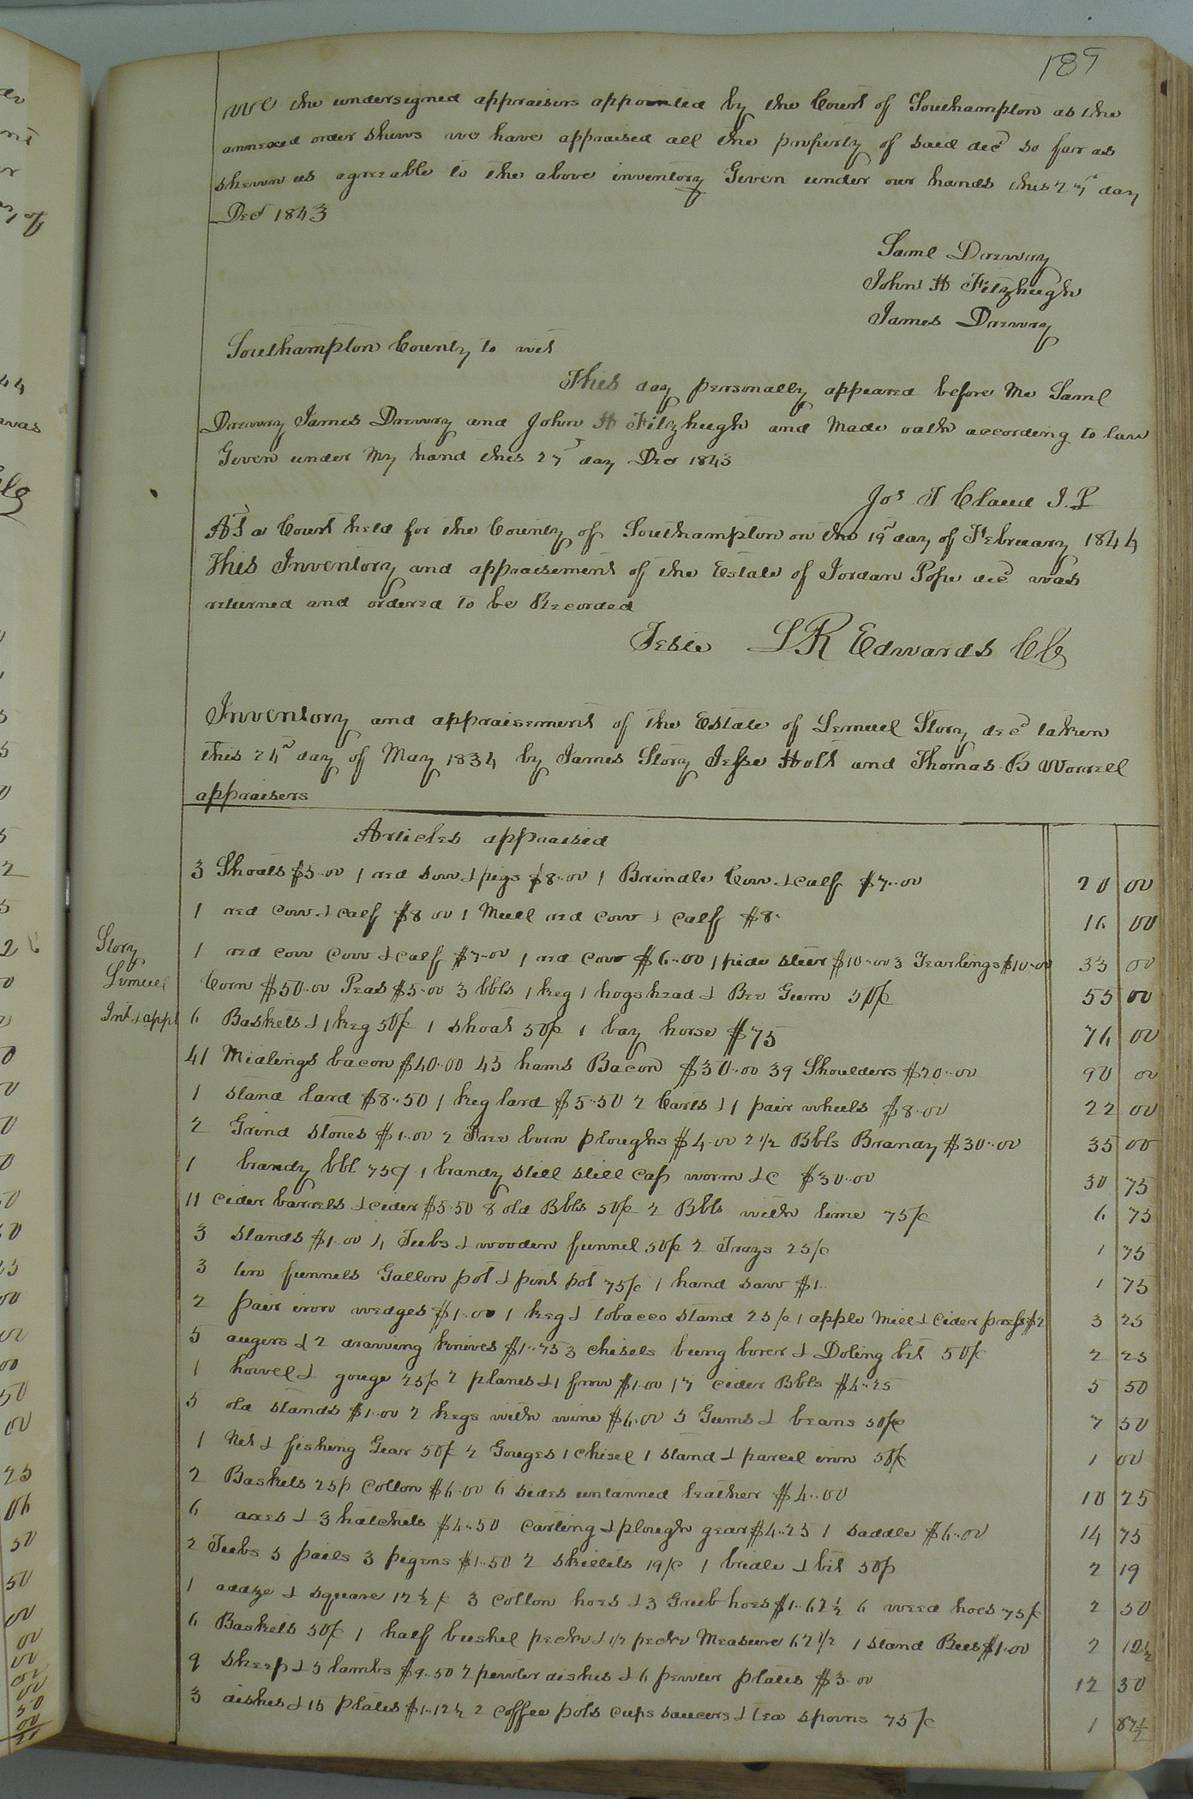 189
We the undersigned appraisers appointed by the Court of Southampton as the
annexed order shews we have appraised all the property of said decd so far as
shewn us agreeable to the above inventory Given under our hands this 27th day
Decr 1843
Saml Drewry
John H Fitzhugh
James Drewry
Southampton County to wit
This day personally appeared before me Saml
Drewry James Drewry and John H Fitzhugh and made oath according to law
Given under my hand this 27th day Decr 1843
Jos T Claud J.P
At a Court held for the County of Southampton on the 19th day of February 1844
This Inventory and appraisement of the Estate of Jordan Pope decd was
returned and ordered to be Recorded
Teste L R Edwards CC
Inventory and appraisement of the Estate of Lemuel Story decd taken
this 24th day of May 1834 by James Story Jesse Holt and Thomas B Worrell
appraisers
Articles appraised
3 Shoats $5..00 1 red sow & pigs $8..00 1 Brindle Cow & calf $7..00 20 00
1 red cow & calf $8 00 1 Mull red cow & calf $8. 16 00
Story
Lemuel
Int & appt
1 red cow cow & calf $7-00 1 red cow $6-00 1 pide steer $10-00 3 Yearlings $10-00 33 00
Corn $50.00 Peas $5-00 3 bbls 1 keg 1 hogshead & Bee Gum 50/c 55 00
6 Baskets & 1 keg 50/c 1 shoat 50/c 1 bay horse $75 76 00
41 Midlings bacon $40.00 43 hams Bacon $30..00 39 Shoulders $20..00 90 00
1 stand lard $8..50 1 keg lard $5..50 2 Carts & 1 pair wheels $8.00 22 00
2 Grind stones $1.00 2 Free born ploughs $4.00 2 1/2 Bbls Brandy $30..00 35 00
1 brandy bbl 75 1 brandy still still cap worm &C $30..00 30 75
11 cider barrels & cider $5.50 8 old Bbls 50/c 2 Bbls with lime 75/c 6 75
3 stands $1.00 4 Tubs & wooden funnel 50/c 2 Trays 25/c 1 75
3 tin funnels Gallon pot & pint pot 75/c 1 hand saw $1. 1 75
2 pair iron wedges $1..00 1 keg & tobacco stand 25/c 1 apple Mill & Cider press $2 3 25
5 augers & 2 drawing knives $1..75 3 chisels bung borer & Doling bit 50/c 2 25
1 howel & gouge 25/c 2 planes & 1 frow $1.00 17 cider Bbls $4.25 5 50
5 old stands $1.00 2 kegs with wine $6.00 5 Gums & beans 50/c 7 50
1 Net & fishing Gear 50/c 2 Gouges 1 chisel 1 stand & parcel iron 50/c 1 00
2 Baskets 25/c Cotton $6.00 6 sides untanned leather $4..00 10 25
6 axes & 3 hatchets $4..50 Carting & plough gear $4.25 1 saddle $6.00 14 75
2 Tubs 5 pails 3 pigens $1.50 2 skillets 19/c 1 bridle & bit 50/c 2 19
1 addze & square 12 1/2/c 3 Cotton hoes & 3 Grub hoes $1..62 1/2 6 weed hoes 75/c 2 50
6 Baskets 50/c 1 half bushel peck & 1/2 peck Measure 62 1/2 1 stand Bees $1.00 2 12 1/2
9 sheep & 5 lambs $9.50 2 pewter dishes & 6 pewter plates $3.00 12 50
3 dishes & 15 plates $1.12 1/2 2 Coffee pots cups saucers & tea spoons 75/c 1 87 1/2